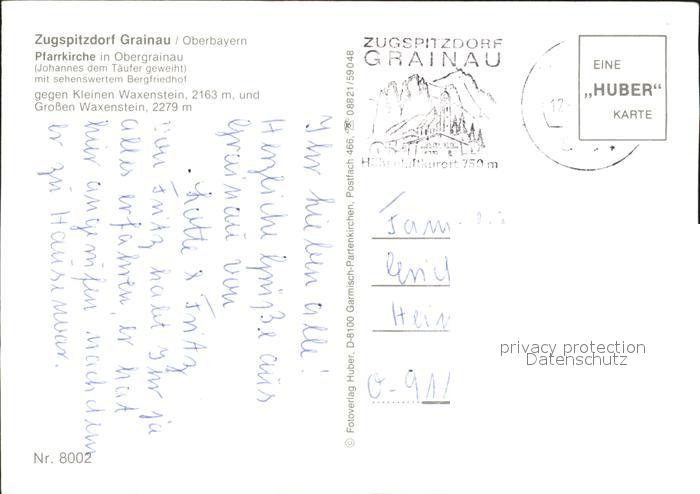 Zugspitzdorf Grainau / Oberbayern
Pfarrkirche in Obergrainau
(Johannes dem Täufer geweiht)
mit sehenswertem Bergfriedhof
gegen Kleinen Waxenstein, 2163 m, und
Großen Waxenstein, 2279 m
Ihr lieben alle!
Herzliche Grüße aus
Grainau von
Käthe & Fritz
von Fritz habt Ihr ja
alles erfahren, er hat
hier angerufen nachdem
er zu Hause war.
Nr. 8002
© Fotoverlag Huber, D-8100 Garmisch-Partenkirchen, Postfach 466, ☎ 08821/59048
ZUGSPITZDORF
GRAINAU
Höhenluftkurort 750 m
12
EINE
„HUBER“
KARTE
Fam
Hein
O-911
privacy protection
Datenschutz